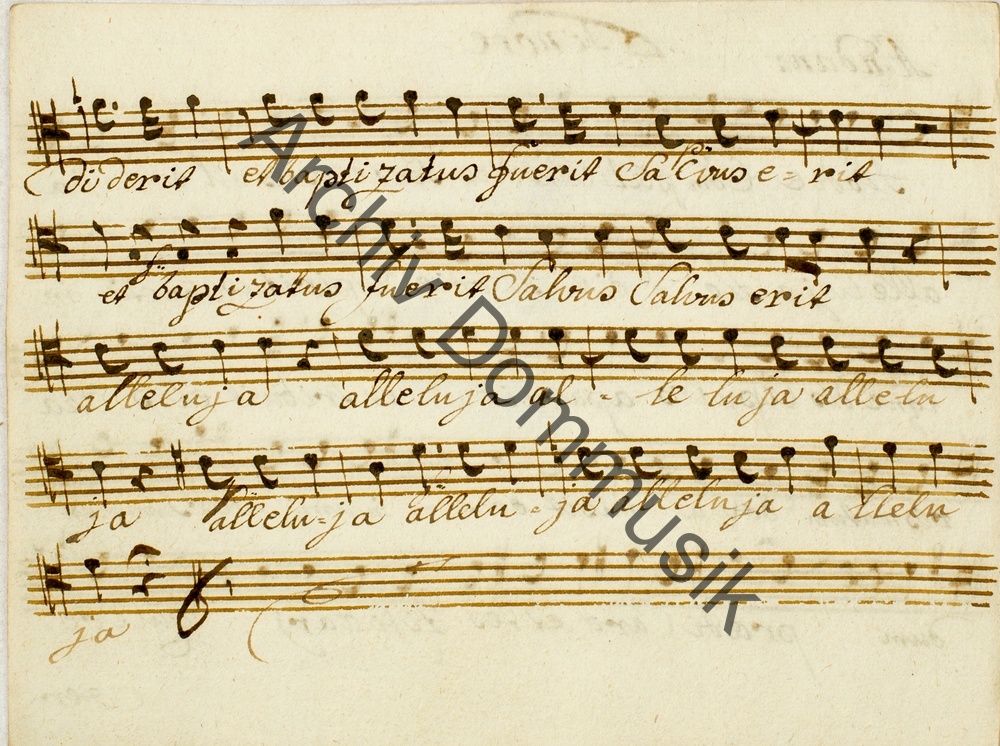 diderit et baptizatus fuerit Salvus e=rit
et baptizatus fuerit Salvus Salvus erit
alleluja alleluja al - le luja allelu
ja allelu=ja allelu-ja alleluja allelu
ja
Archiv Dommusik